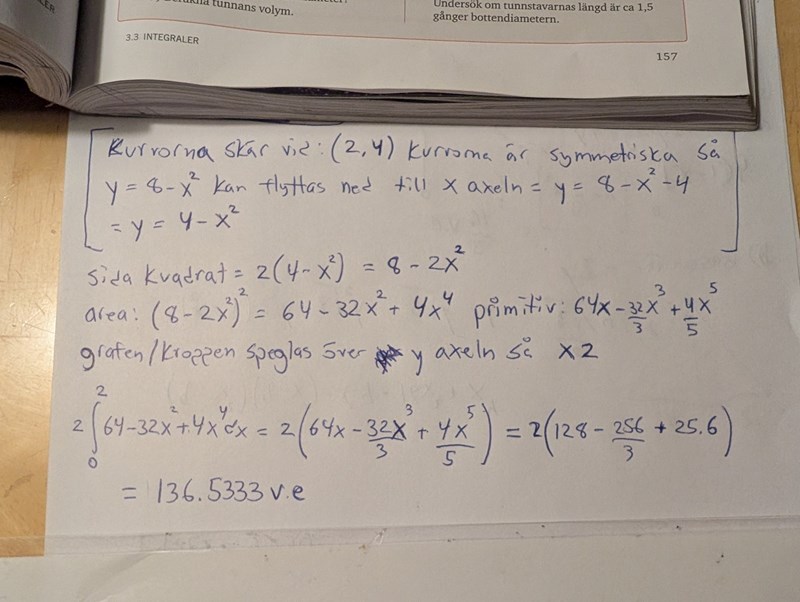 LER
tunnans volym.
Undersök om tunnstavarnas längd är ca 1,5
gånger bottendiametern.
3.3 INTEGRALER
157
Kurvorna skär vid: (2,4) kurvorna är symmetriska så
y = 8-x² kan flyttas ned till x axeln = y = 8-x²-4
= y = 4-x²
Sida kvadrat = 2(4-x²) = 8-2x²
area: (8-2x²)² = 64-32x²+4x⁴ primitiv: 64x - 32x³/3 + 4x⁵/5
grafen/kroppen speglas över y axeln så x2
2∫₀² 64-32x²+4x⁴dx = 2(64x - 32x³/3 + 4x⁵/5) = 2(128 - 256/3 + 25.6)
= 136.5333 v.e